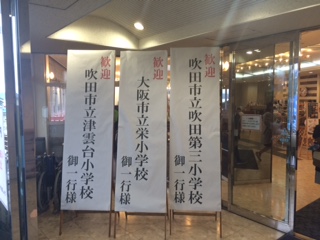 歓迎
吹田市立吹田第三小学校
御一行様
歓迎
大阪市立栄小学校
御一行様
歓迎
吹田市立津雲台小学校
御一行様